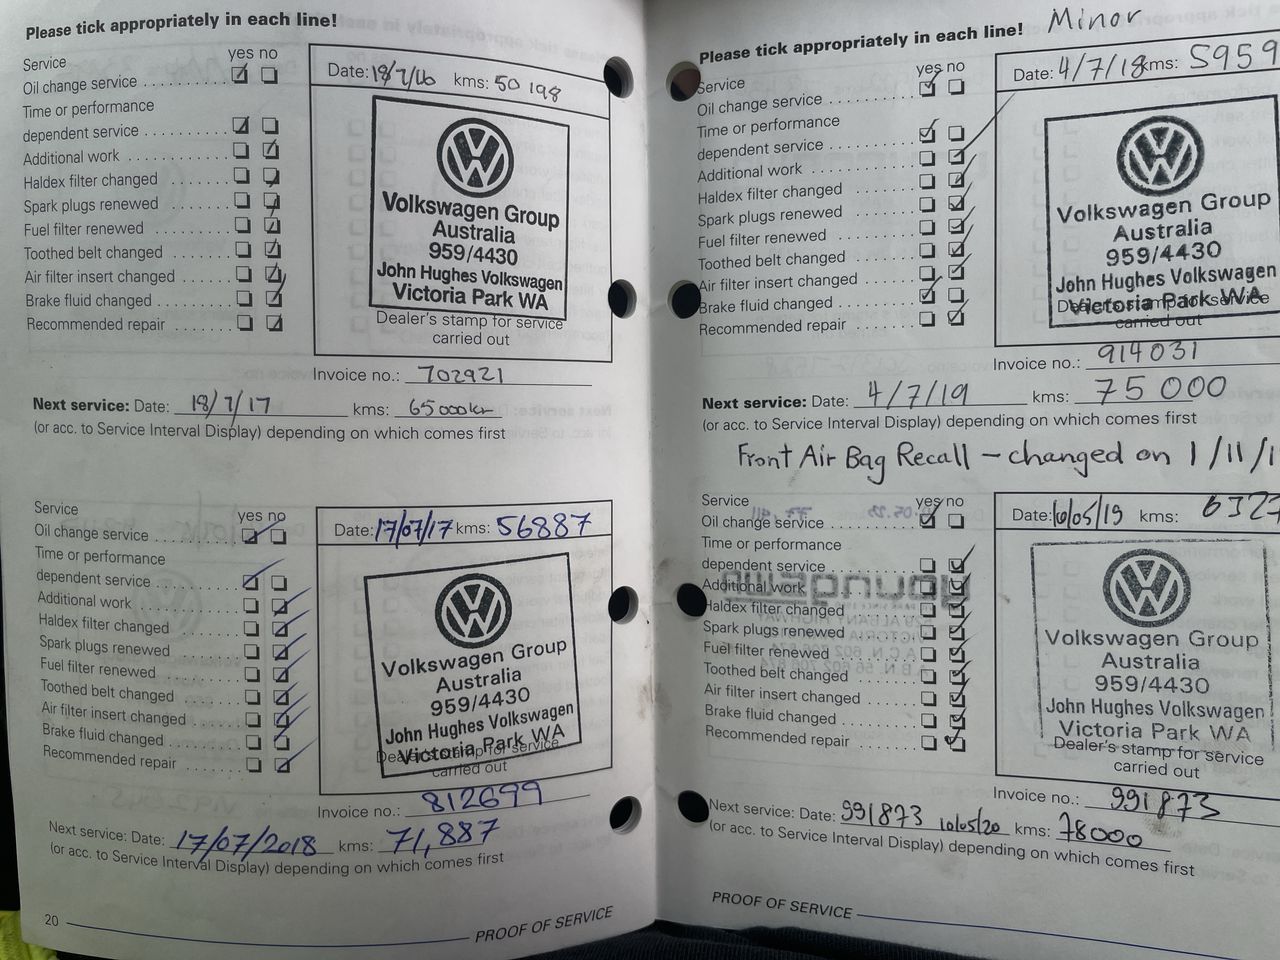 Please tick appropriately in each line!
Service yes no
Oil change service
Time or performance
dependent service
Additional work
Haldex filter changed
Spark plugs renewed
Fuel filter renewed
Toothed belt changed
Air filter insert changed
Brake fluid changed
Recommended repair
Date: 18/7/16 kms: 50 198
Volkswagen Group
Australia
959/4430
John Hughes Volkswagen
Victoria Park WA
Dealer's stamp for service
carried out
Invoice no.: 702921
Next service: Date: 18/7/17 kms: 65000km
(or acc. to Service Interval Display) depending on which comes first
Service yes no
Oil change service
Time or performance
dependent service
Additional work
Haldex filter changed
Spark plugs renewed
Fuel filter renewed
Toothed belt changed
Air filter insert changed
Brake fluid changed
Recommended repair
Date: 17/07/17 kms: 56887
Volkswagen Group
Australia
959/4430
John Hughes Volkswagen
Victoria Park WA
Dealer's stamp for service
carried out
Invoice no.: 812699
Next service: Date: 17/07/2018 kms: 71,887
(or acc. to Service Interval Display) depending on which comes first
20
PROOF OF SERVICE
Minor
Please tick appropriately in each line!
Service yes no
Oil change service
Time or performance
dependent service
Additional work
Haldex filter changed
Spark plugs renewed
Fuel filter renewed
Toothed belt changed
Air filter insert changed
Brake fluid changed
Recommended repair
Date: 4/7/18 kms: 5959
Volkswagen Group
Australia
959/4430
John Hughes Volkswagen
Victoria Park WA
Dealer's stamp for service
carried out
Invoice no.: 914031
Next service: Date: 4/7/19 kms: 75 000
(or acc. to Service Interval Display) depending on which comes first
Front Air Bag Recall – changed on 1/11/1
Service yes no
Oil change service
Time or performance
dependent service
Additional work
Haldex filter changed
Spark plugs renewed
Fuel filter renewed
Toothed belt changed
Air filter insert changed
Brake fluid changed
Recommended repair
Date: 10/05/19 kms: 6327
Volkswagen Group
Australia
959/4430
John Hughes Volkswagen
Victoria Park WA
Dealer's stamp for service
carried out
Invoice no.: 991873
Next service: Date: 991873 10/05/20 kms: 78000
(or acc. to Service Interval Display) depending on which comes first
PROOF OF SERVICE